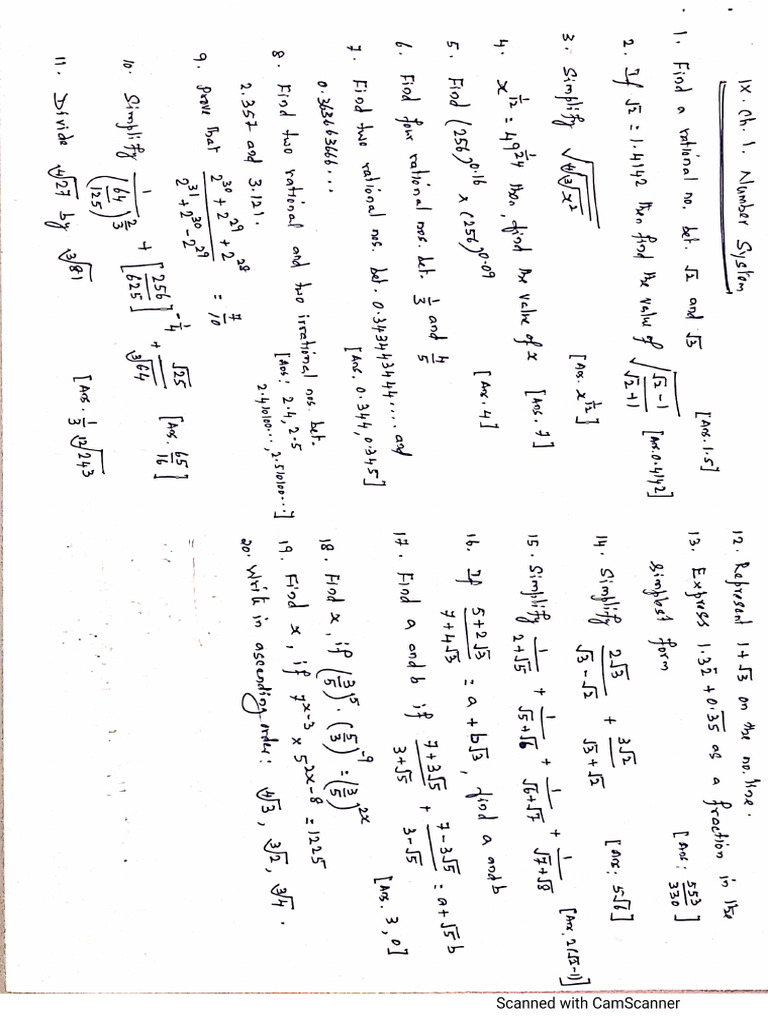 IX. Ch. 1. Number System
1. Find a rational no. bet. √2 and √3 [Ans. 1.5]
2. If √2 = 1.4142 then find the value of √((√2-1)/(√2+1)) [Ans. 0.4142]
3. Simplify ∜(∛(x²)) [Ans. x^(1/12)]
4. x^(1/12) = 49^(1/24) then, find the value of x [Ans. 7]
5. Find (256)^0.16 × (256)^0.09 [Ans. 4]
6. Find four rational nos. bet. 1/3 and 4/5
7. Find two rational nos. bet. 0.343443444.... and
0.363663666... [Ans. 0.344, 0.345]
8. Find two rational and two irrational nos. bet.
2.357 and 3.121. [Ans: 2.4, 2.5
2.41010..., 2.51010...]
9. Prove that (2^30 + 2^29 + 2^28)/(2^31 + 2^30 - 2^29) = 7/10
10. Simplify 1/(64/125)^(2/3) + [256/625]^(-1/4) + √25/∛64 [Ans. 65/16]
11. Divide ∜27 by ∛81 [Ans. 1/3 ¹²√243]
12. Represent 1+√3 on the no. line.
13. Express 1.32̅ + 0.3̅5̅ as a fraction in the
simplest form [Ans: 553/330]
14. Simplify 2√3/(√3-√2) + 3√2/(√3+√2) [Ans: 5√6]
15. Simplify 1/(2+√5) + 1/(√5+√6) + 1/(√6+√7) + 1/(√7+√8) [Ans. 2(√2-1)]
16. If (5+2√3)/(7+4√3) = a+b√3, find a and b
17. Find a and b if (7+3√5)/(3+√5) + (7-3√5)/(3-√5) = a+√5b
[Ans. 3, 0]
18. Find x, if (3/5)^5 · (5/3)^-9 = (3/5)^2x
19. Find x, if 7^(x-3) × 5^(2x-8) = 1225
20. Write in ascending order: ∜3, ∛2, ∛4.
Scanned with CamScanner